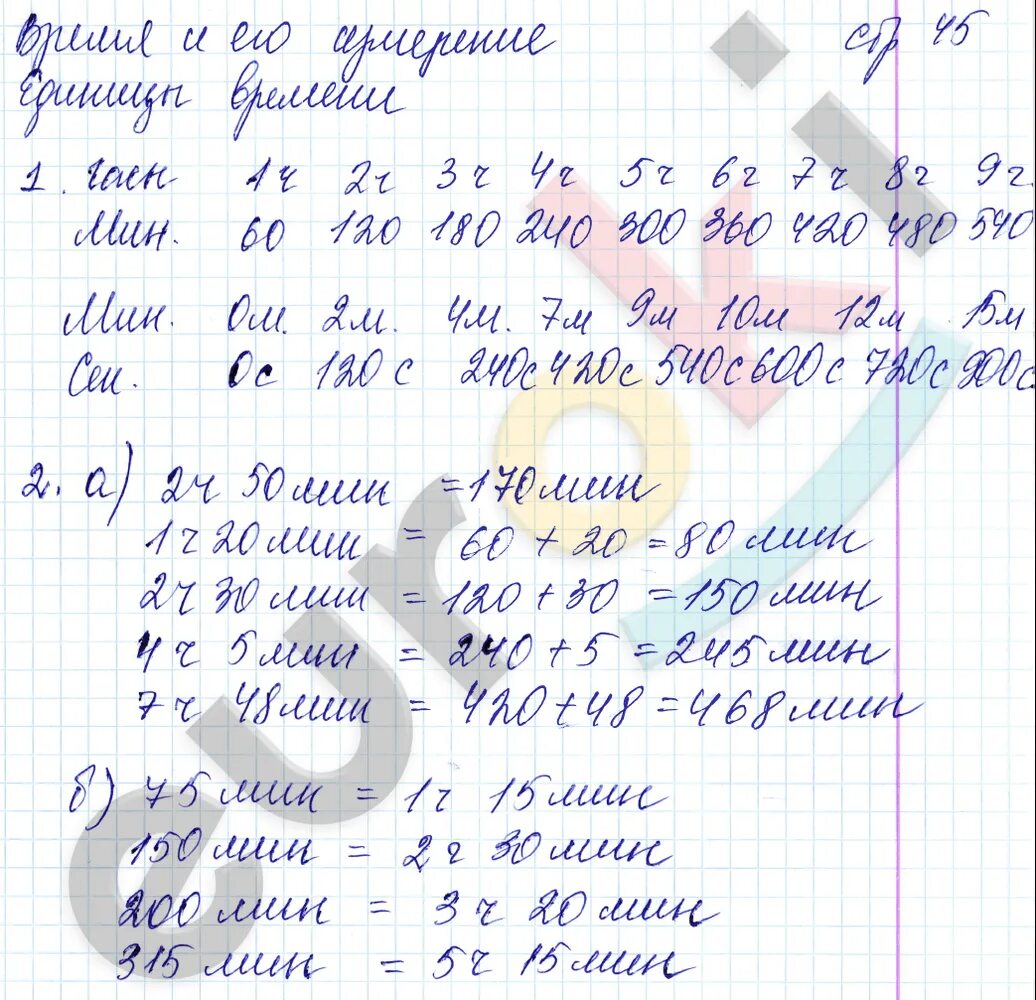 Время и его измерение стр 45
Единицы времени
1. Часы 1ч 2ч 3ч 4ч 5ч 6ч 7ч 8ч 9ч
Мин. 60 120 180 240 300 360 420 480 540
Мин. 0м. 2м. 4м. 7м 9м 10м 12м 15м
Сек. 0с 120с 240с 420с 540с 600с 720с 900с
2. а) 2ч 50мин = 170мин
1ч 20мин = 60 + 20 = 80 мин
2ч 30мин = 120 + 30 = 150мин
4ч 5мин = 240 + 5 = 245мин
7ч 48мин = 420 + 48 = 468мин
б) 75мин = 1ч 15мин
150мин = 2ч 30мин
200мин = 3ч 20мин
315мин = 5ч 15мин
euroki